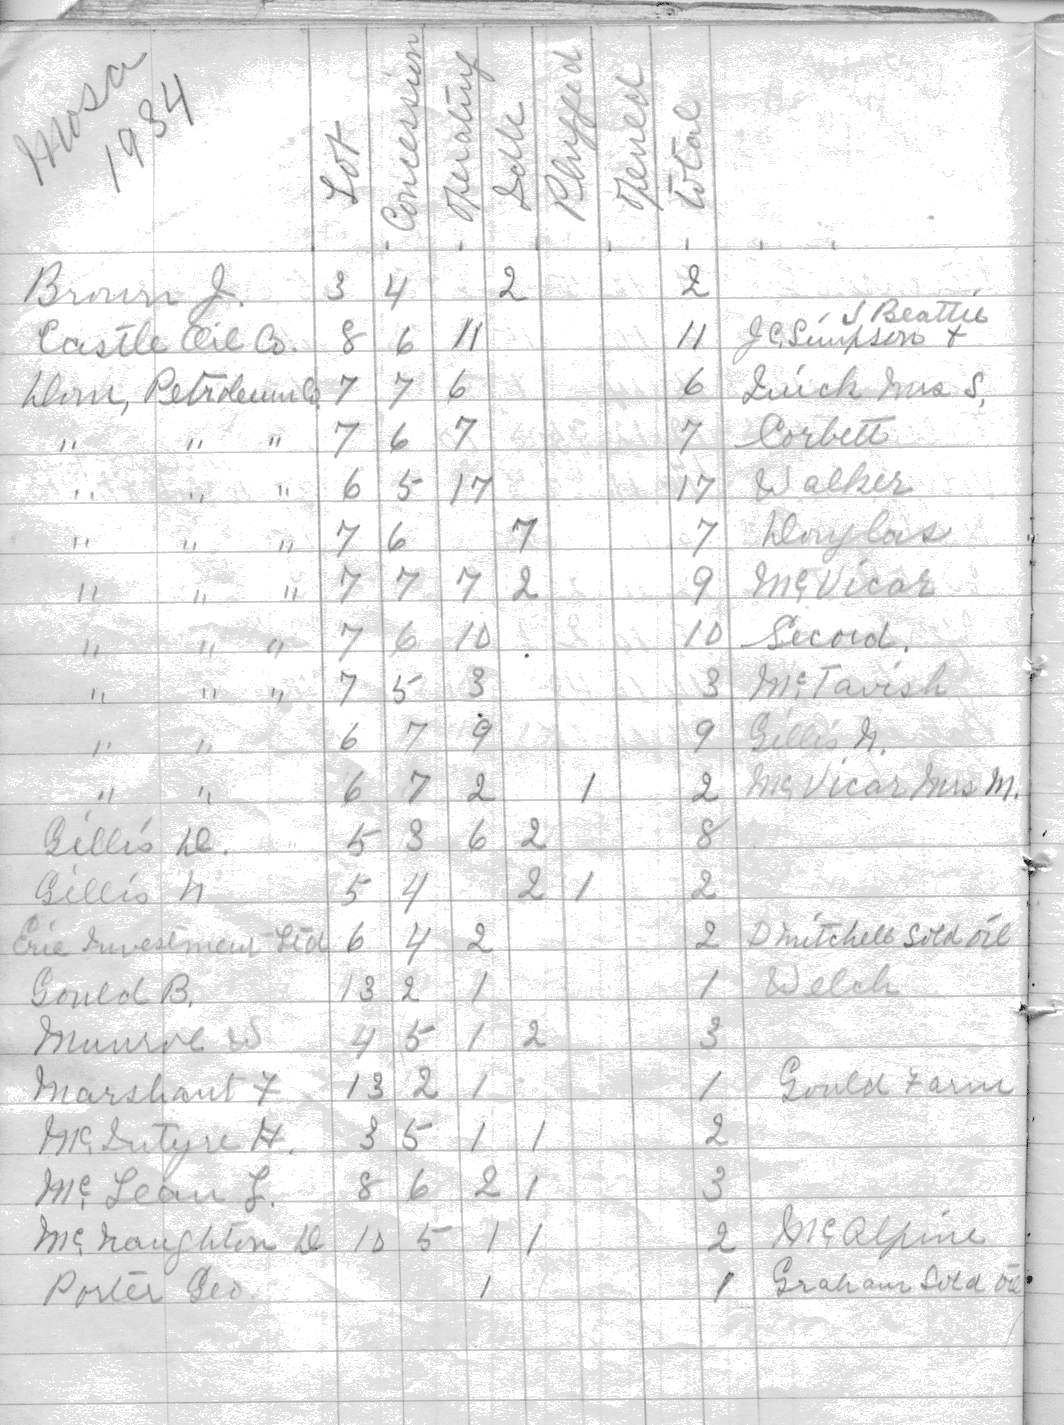 Mosa
1934
Lot Concession operating Idle Plugged opened total
Brown J. 3 4 2 2
J Beattie
Castle Oil Co. 8 6 11 11 J C Simpson +
Dom, Petroleum Co. 7 7 6 6 Quick Mrs S,
" " " 7 6 7 7 Corbett
" " " 6 5 17 17 Walker
" " " 7 6 7 7 Douglas
" " " 7 7 7 2 9 McVicar
" " " 7 6 10 10 Secord.
" " " 7 5 3 3 McTavish
" " 6 7 9 9 Gillis N.
" " 6 7 2 1 2 McVicar Mrs M.
Gillis D. 5 3 6 2 8
Gillis N 5 4 2 1 2
Erie Investment Ltd 6 4 2 2 D Mitchell Sold Oil
Gould B. 13 2 1 1 Welch
Munroe W 4 5 1 2 3
Marshant F 13 2 1 1 Gould Farm
McIntyre H. 3 5 1 1 2
McLean L. 8 6 2 1 3
McNaughton D 10 5 1 1 2 McAlpine
Porter Geo. 1 1 Graham Sold Oil